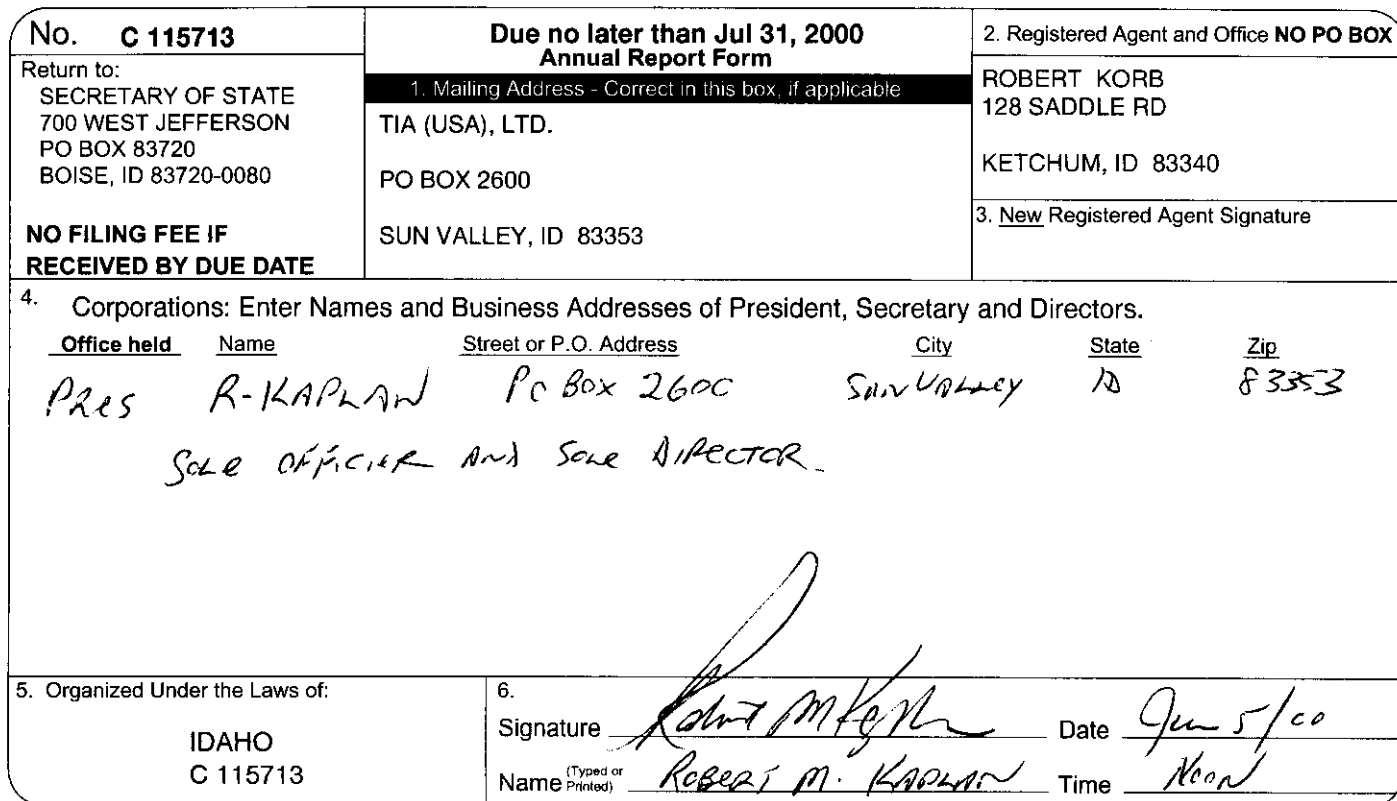 No. C 115713
Return to:
SECRETARY OF STATE
700 WEST JEFFERSON
PO BOX 83720
BOISE, ID 83720-0080
NO FILING FEE IF
RECEIVED BY DUE DATE
Due no later than Jul 31, 2000
Annual Report Form
1. Mailing Address - Correct in this box, if applicable
TIA (USA), LTD.
PO BOX 2600
SUN VALLEY, ID 83353
2. Registered Agent and Office NO PO BOX
ROBERT KORB
128 SADDLE RD
KETCHUM, ID 83340
3. New Registered Agent Signature
4. Corporations: Enter Names and Business Addresses of President, Secretary and Directors.
Office held Name Street or P.O. Address City State Zip
PRES R-KAPLAN PO BOX 2600 SUN VALLEY ID 83353
SOLE OFFICIER AND SOLE DIRECTOR
5. Organized Under the Laws of:
IDAHO
C 115713
6.
Signature Robert M Kaplan Date Jun 5/00
Name (Typed or Printed) ROBERT M. KAPLAN Time Noon